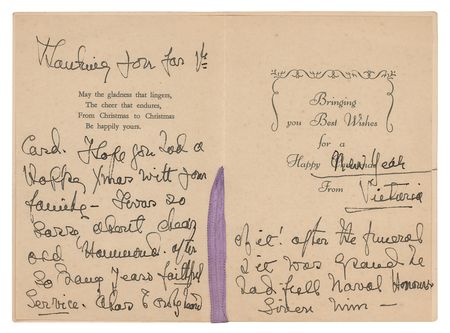 Thanking you for Yr
May the gladness that lingers,
The cheer that endures,
From Christmas to Christmas
Be happily yours.
Card. I hope you had a
Happy Xmas with your
family – I was so
sorry about dear
old Hammond. after
so many years faithful
Service. Alas I only heard
Bringing
you Best Wishes
for a
Happy New Year
From
Victoria
of it! after the funeral
& it was grand he
had full Naval Honours
given him –